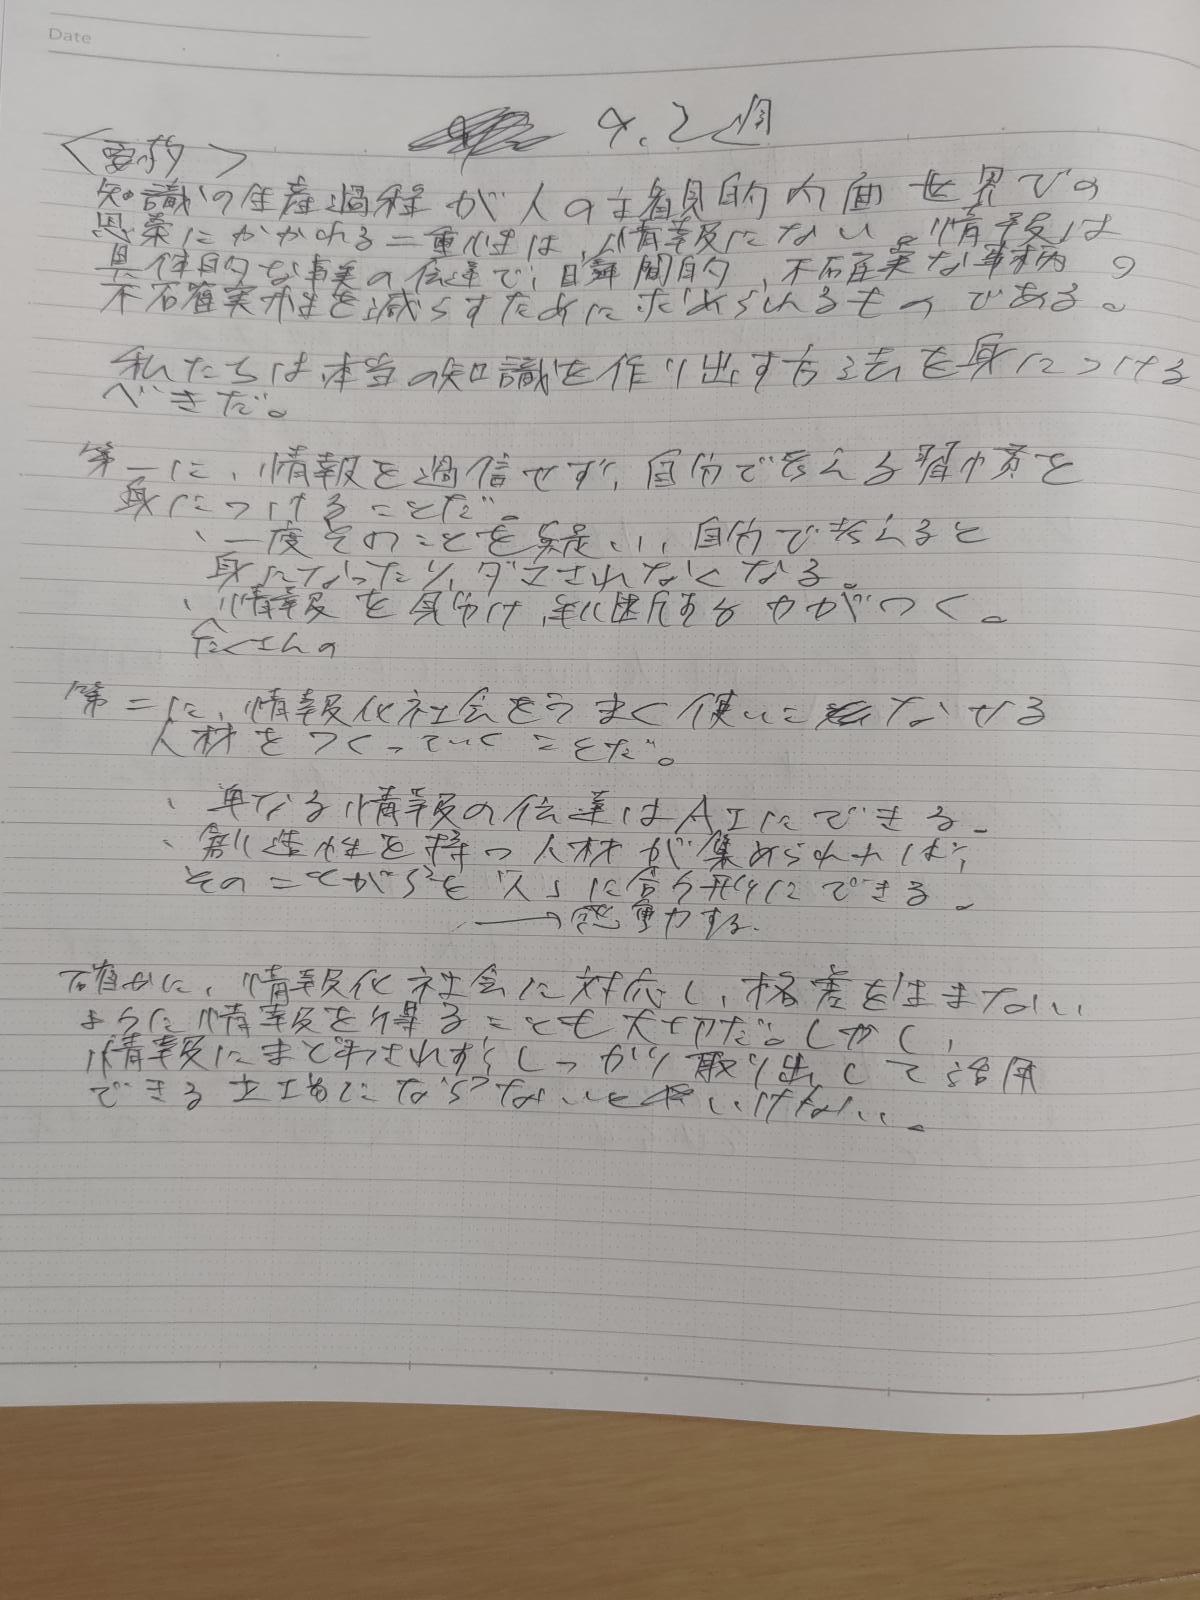 Date
9.2週
<要約>
知識の生産過程が人の主観的内面世界での
思索にかかわる二重性は、情報にない。情報は
具体的な事実の伝達で、時間的、不確実な事柄の
不確実性を減らすために求められるものである。
私たちは、本当の知識を作り出す方法を身につける
べきだ。
第一に、情報を過信せず、自分で考える習慣を
身につけることだ。
・一度そのことを疑い、自分で考えると
身になったり、ダマされなくなる。
・情報を見分け、判断する力がつく。
たくさんの
第二に、情報化社会をうまく使いこなせる
人材をつくっていくことだ。
・単なる情報の伝達はAIにできる。
・創造性を持つ人材が集められれば、
そのことがらを「人」に合う形にできる。
→感動する。
確かに、情報化社会に対応し、格差を生まない
ように情報を得ることも大切だ。しかし、
情報にまどわされず、しっかり取り出して活用
できる立場にならないといけない。